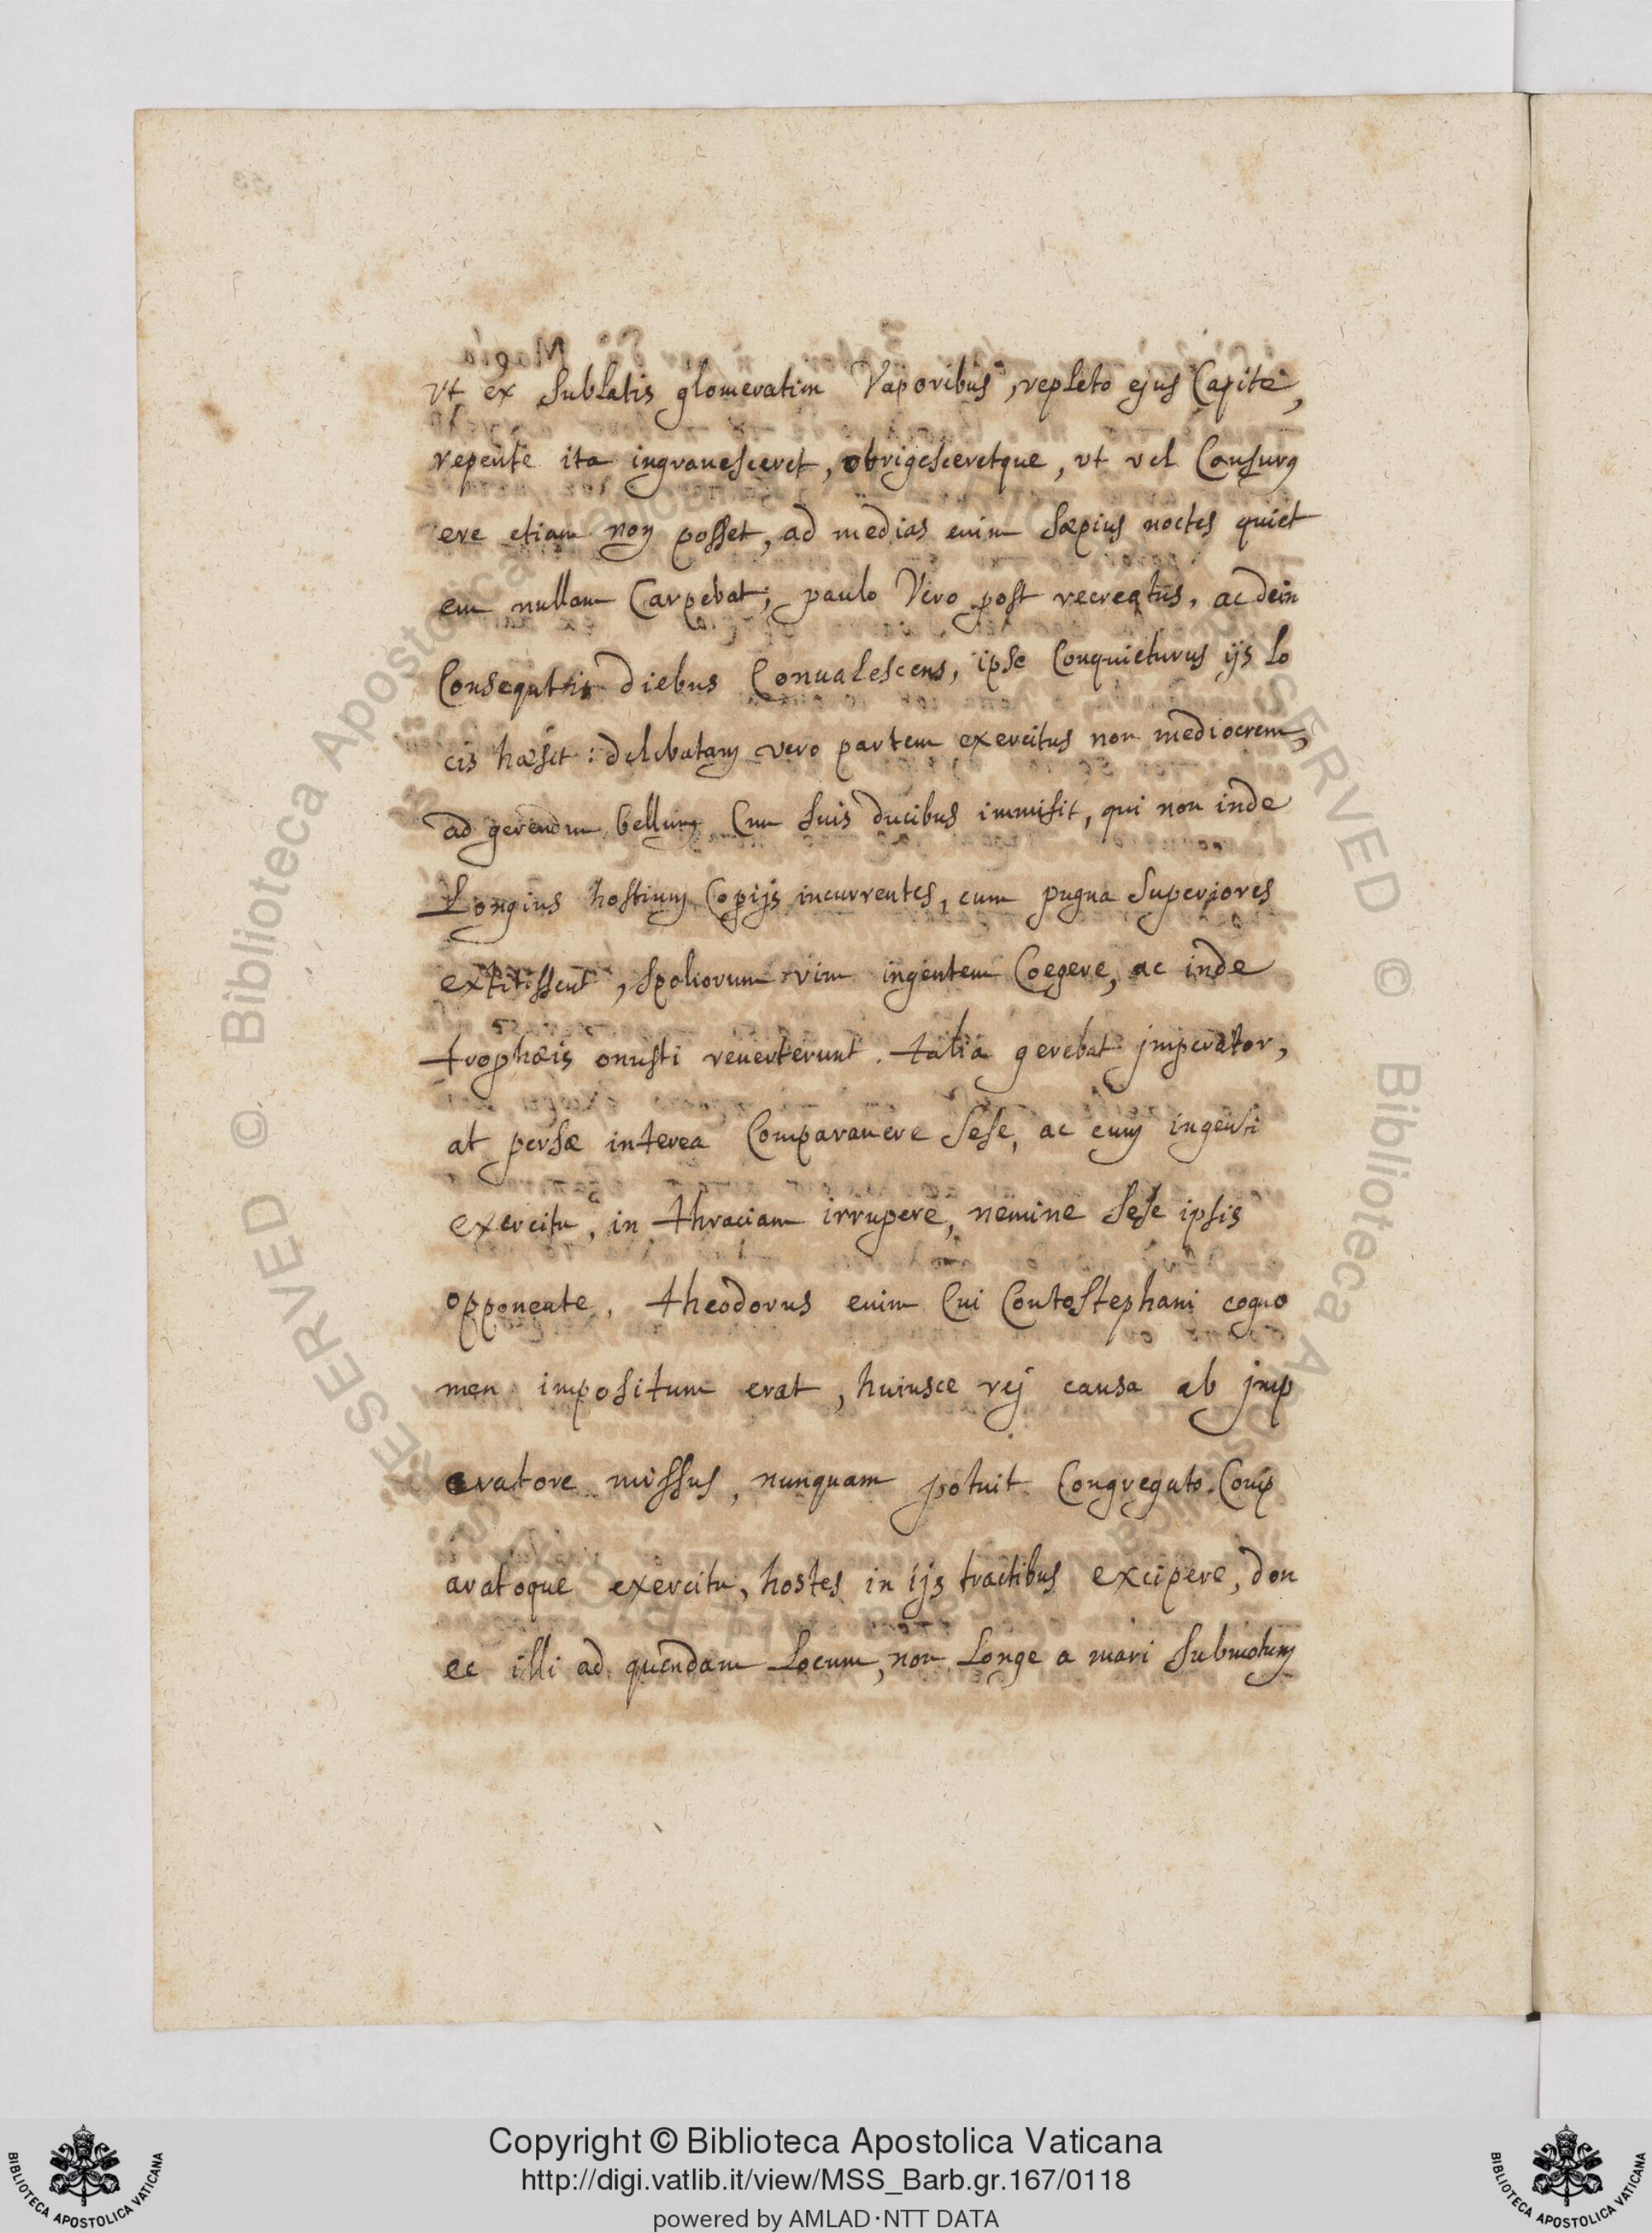 Vt ex sublatis glomeratim Vaporibus, repleto ejus Capite,
repente ita ingrauesceret, obrigesceretque, vt vel Consurg
ere etiam non posset, ad medias enim sæpius noctes quiet
em nullam Carpebat; paulo Vero post recreatus, ac dein
Consequtis diebus Conualescens, ipse Conquieturus ijs lo
cis hæsit: delebatam vero partem exercitus non mediocrem,
ad gerendum bellum Cum suis ducibus immisit, qui non inde
Longius hostium Copijs incurrentes, cum pugna Superiores
extitissent, spoliorum vim ingentem Coegere, ac inde
trophæis onusti reuerterunt. talia gerebat jmperator,
at persæ interea Comparauere Sese, ac cum ingenti
exercitu, in thraciam irrupere, nemine Sese ipsis
opponente. theodorus enim Cui ContoStephani cogno
men impositum erat, huiusce rej causa ab jmp
eratore missus, nunquam potuit Congregato Comp
aratoque exercitu, hostes in ijs tractibus excipere, don
ec illi ad quendam Locum, non Longe a mari submotum
RESERVED © Biblioteca Apostolica Vaticana
RESERVED © Biblioteca Apostolica Vaticana
Copyright © Biblioteca Apostolica Vaticana
http://digi.vatlib.it/view/MSS_Barb.gr.167/0118
powered by AMLAD·NTT DATA
BIBLIOTECA APOSTOLICA VATICANA
BIBLIOTECA APOSTOLICA VATICANA